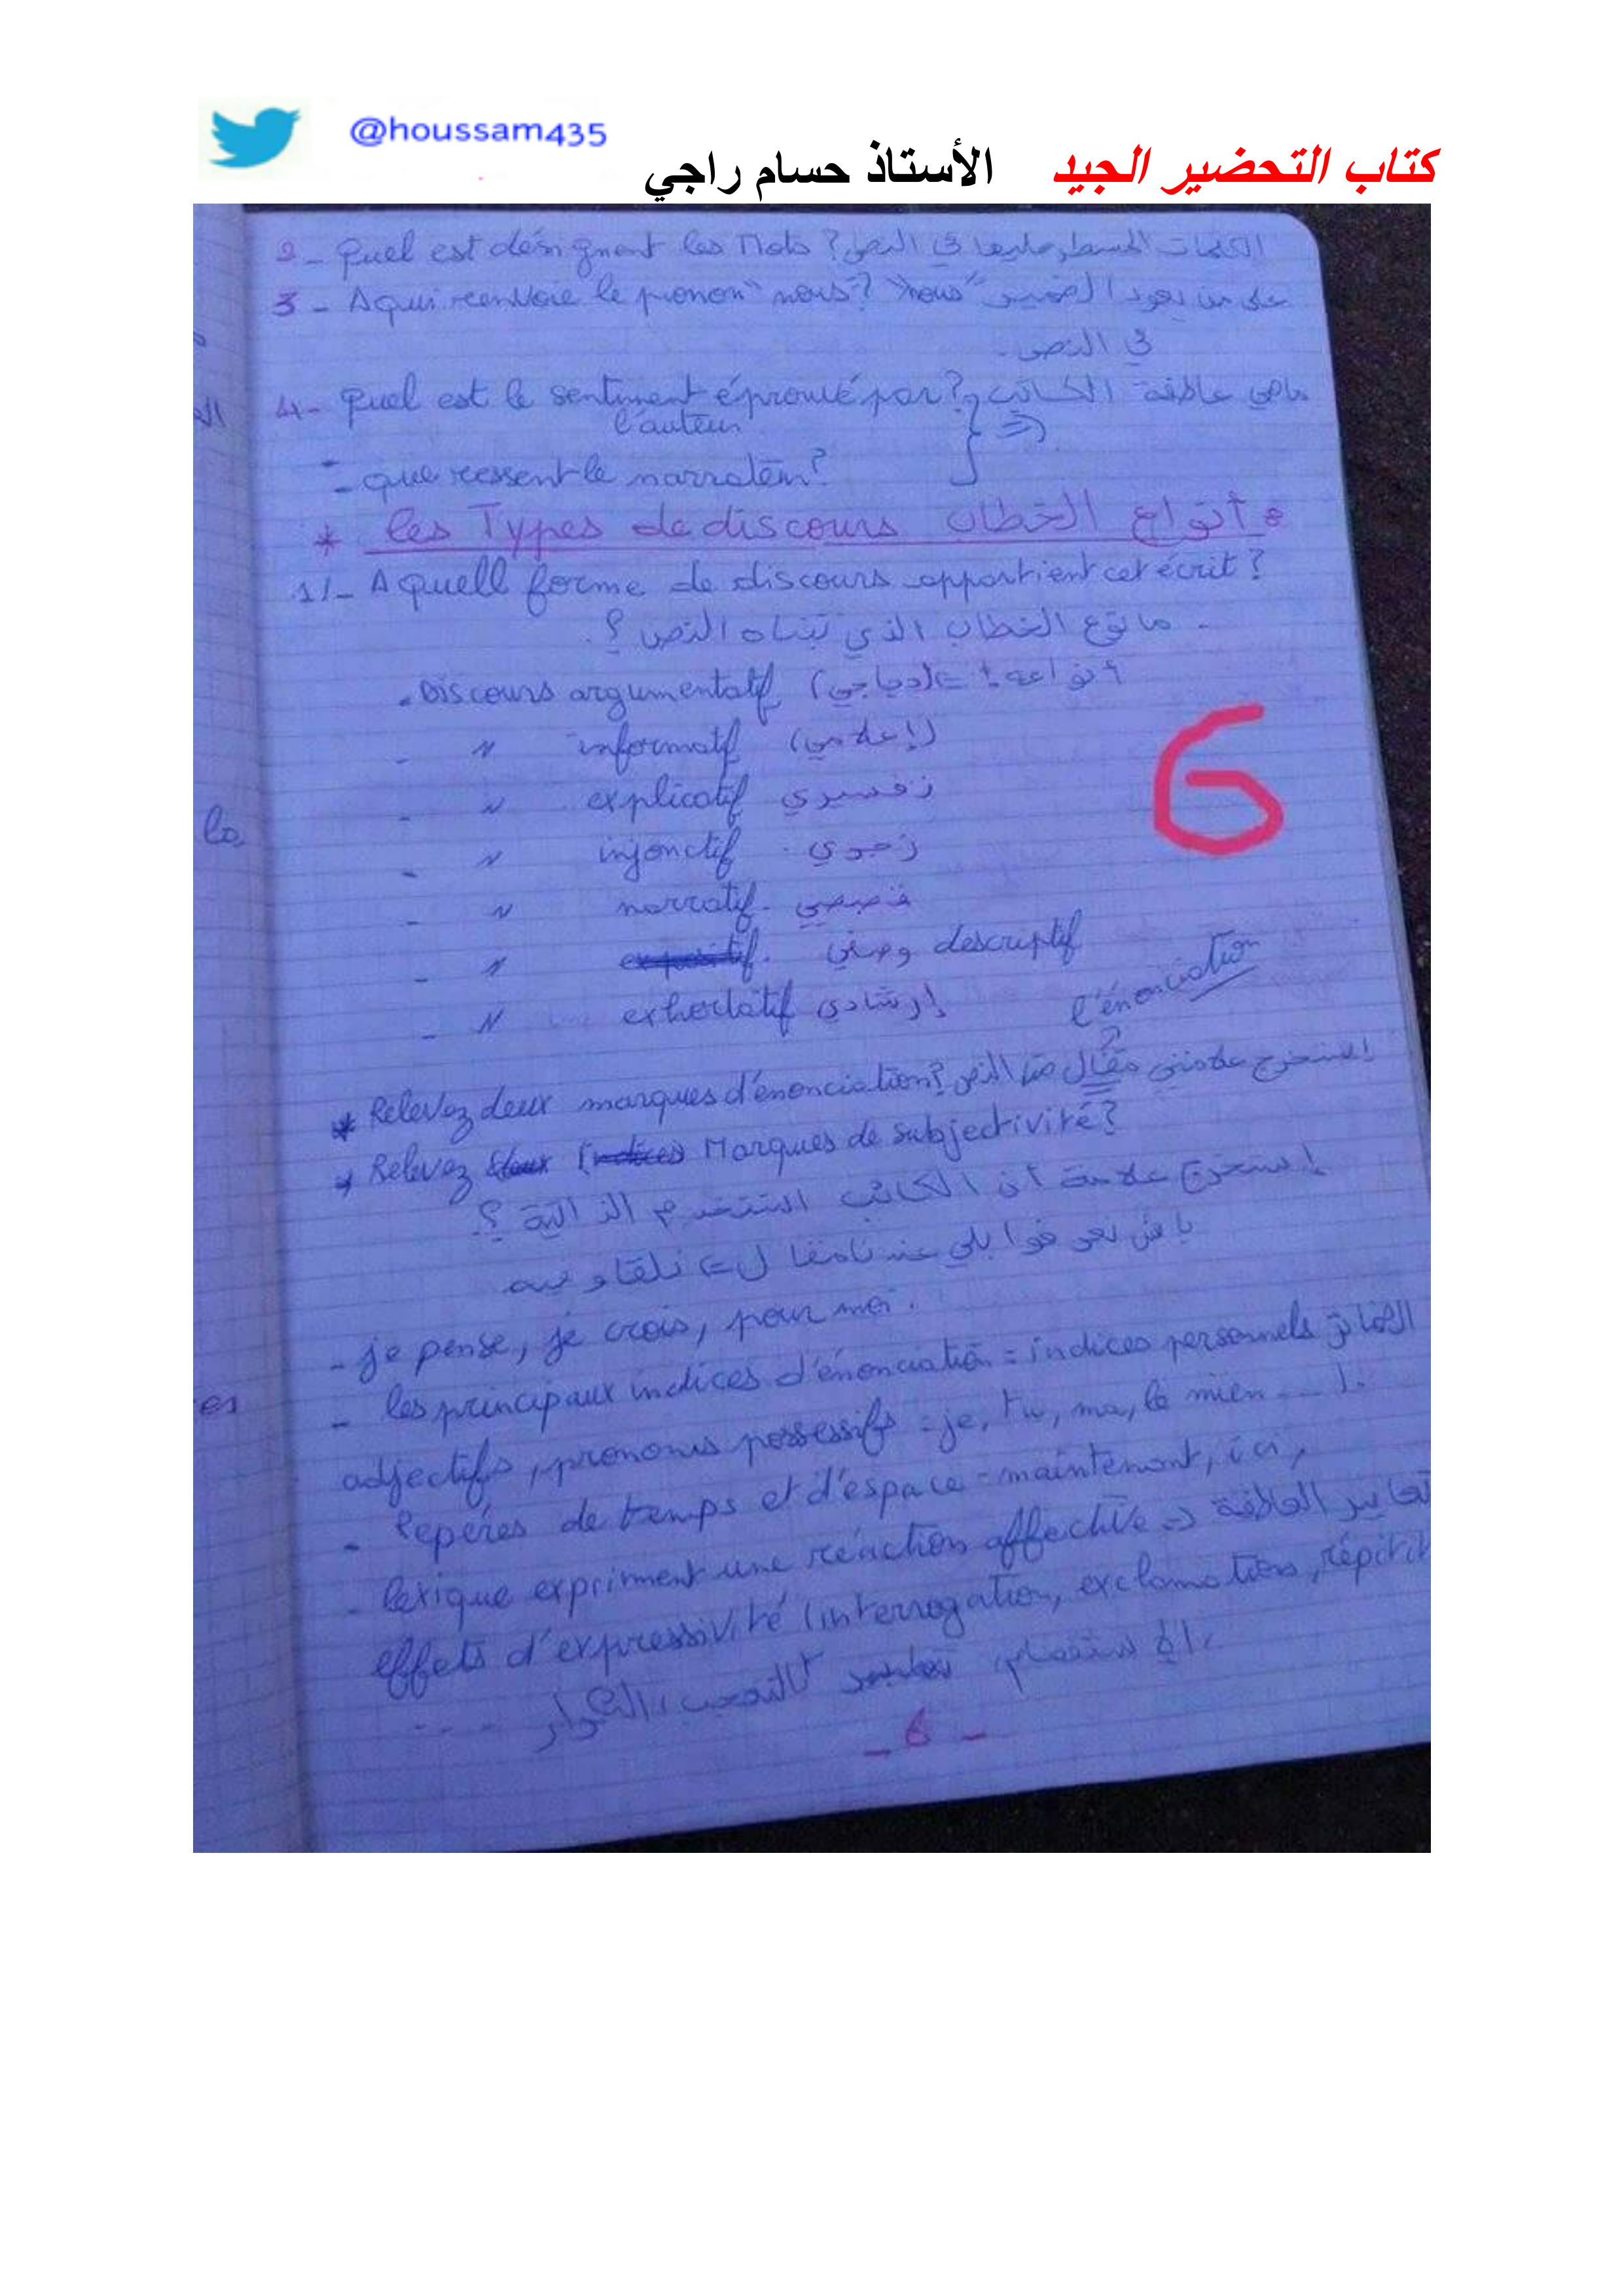 @houssam435
كتاب التحضير الجيد الأستاذ حسام راجي
2 - Quel est désignent les Mots ? الكلمات المسطر عليها في النص
3 - A qui renvoie le pronon "nous"? "nous" على من يعود الضمير
في النص.
4 - Quel est le sentiment éprouvé par ? ماهي عاطفة الكاتب
l'auteur
- que ressent le narrateur?
* les Types de discours أنواع الخطاب
1/- A quell forme de discours appartient cet écrit ?
- ما نوع الخطاب الذي تبناه النص ؟
- Discours argumentatif (حجاجي) <= أنواعه:
- " informatif (إعلامي)
- " explicatif تفسيري
- " injonctif
- " narratif. قصصي
- " descriptif وصفي
- " exhortatif إرشادي
l'énonciation
* Relevez deux marques d'énonciation? إستخرج علامتي مقال من النص
* Relevez Marques de subjectivité?
إستخرج علامة أن الكاتب استخدم الذاتية ؟
باش نعرفوا بلي عندنا مقال <= نلقاو فيه
- je pense, je crois, pour moi.
- les principaux indices d'énonciation = indices personnels الضمائر
adjectifs, pronoms possessifs = je, tu, ma, le mien ...).
- Repères de temps et d'espace = maintenant, ici,
- lexique expriment une réaction affective => تعابير العاطفة
effets d'expressivité (interrogation, exclamation, répitit
الاستفهام، التعجب، ...
- 6 -
6
la
es